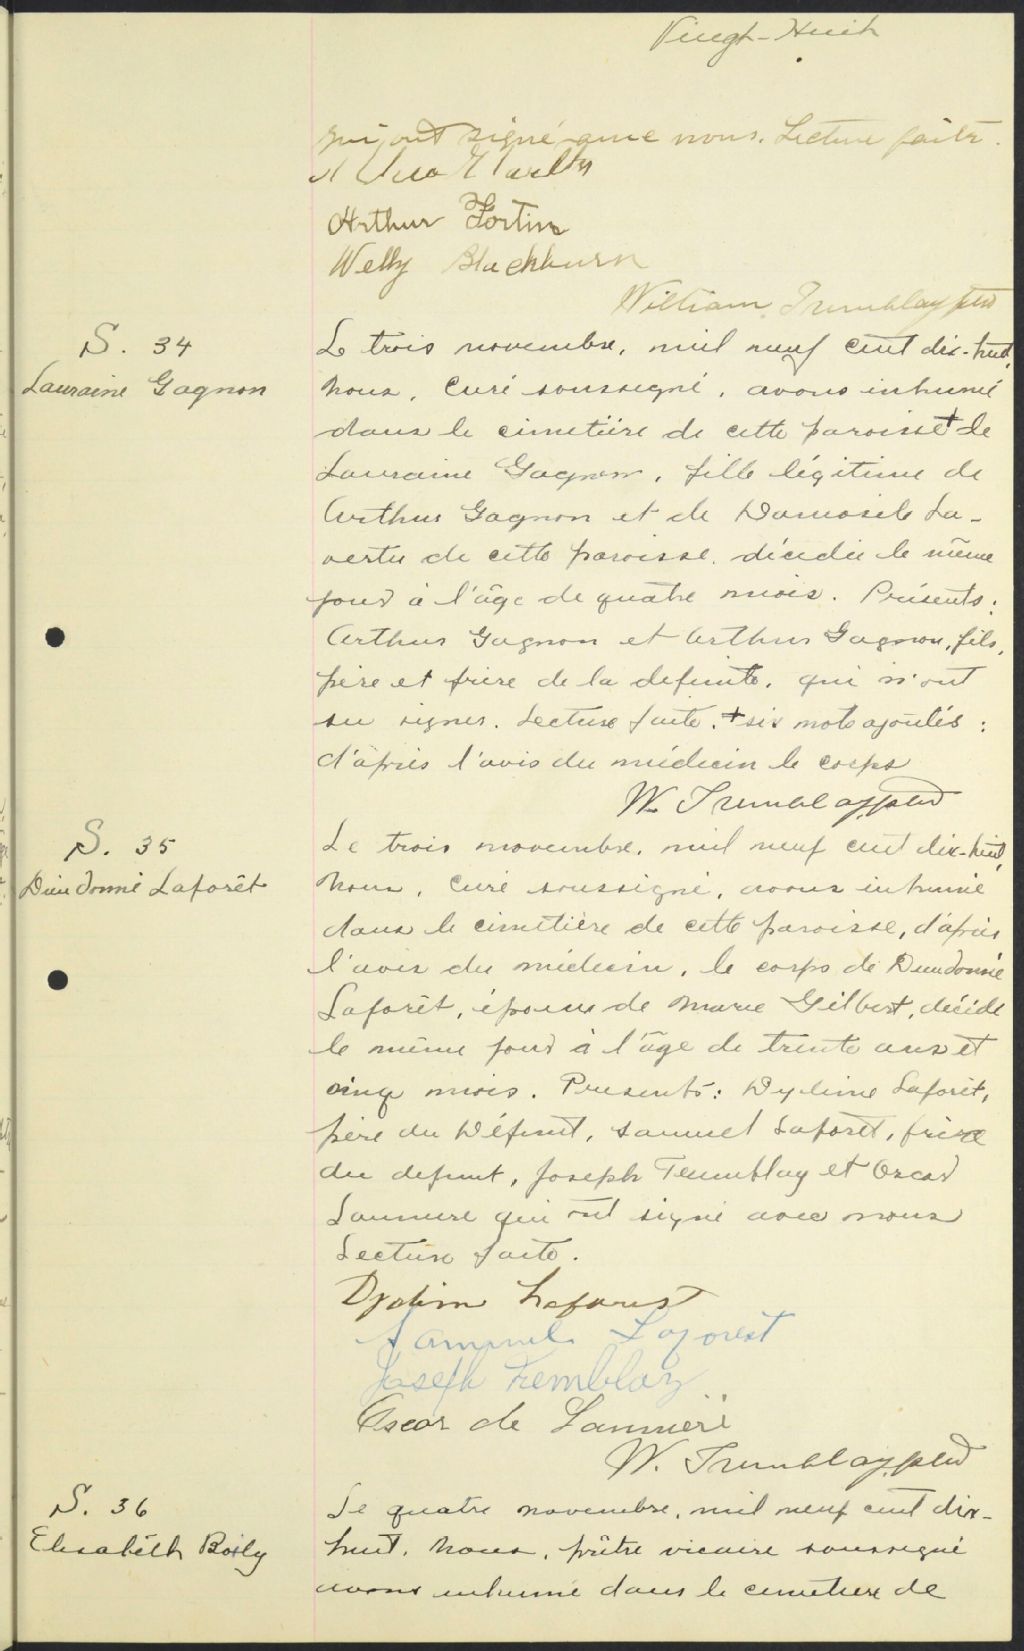 Vingt-Huit
qui ont signé avec nous. Lecture faite.
Arthur Fortin
Welly Blackburn
William Tremblay ptre
S. 34
Lauraine Gagnon
Le trois novembre, mil neuf cent dix-huit,
nous, curé soussigné, avons inhumé
dans le cimetière de cette paroisse + de
Lauraine Gagnon, fille légitime de
Arthur Gagnon et de Damasile La-
vertu de cette paroisse, décédée le même
jour à l'âge de quatre mois. Présents:
Arthur Gagnon et Arthur Gagnon, fils,
père et frère de la defunte, qui n'ont
su signer. Lecture faite. + six mots ajoutés:
d'après l'avis du médecin le corps
W. Tremblay, ptre
S. 35
Dieudonné Laforêt
Le trois novembre, mil neuf cent dix-huit,
nous, curé soussigné, avons inhumé
dans le cimetière de cette paroisse, d'après
l'avis du médecin, le corps de Dieudonné
Laforêt, époux de Marie Gilbert, décédé
le même jour à l'âge de trente ans et
cinq mois. Presents: Dydime Laforêt,
père du Défunt, Samuel Laforêt, frère
du defunt, Joseph Tremblay et Oscar
Laumière qui ont signé avec nous
Lecture faite.
Dydim Laforest
Samuel Laforest
Joseph Tremblay
Oscar de Launière
W. Tremblay, ptre
S. 36
Elisabeth Boily
Le quatre novembre, mil neuf cent dix-
huit, nous, prêtre vicaire soussigné
avons inhumé dans le cimetière de